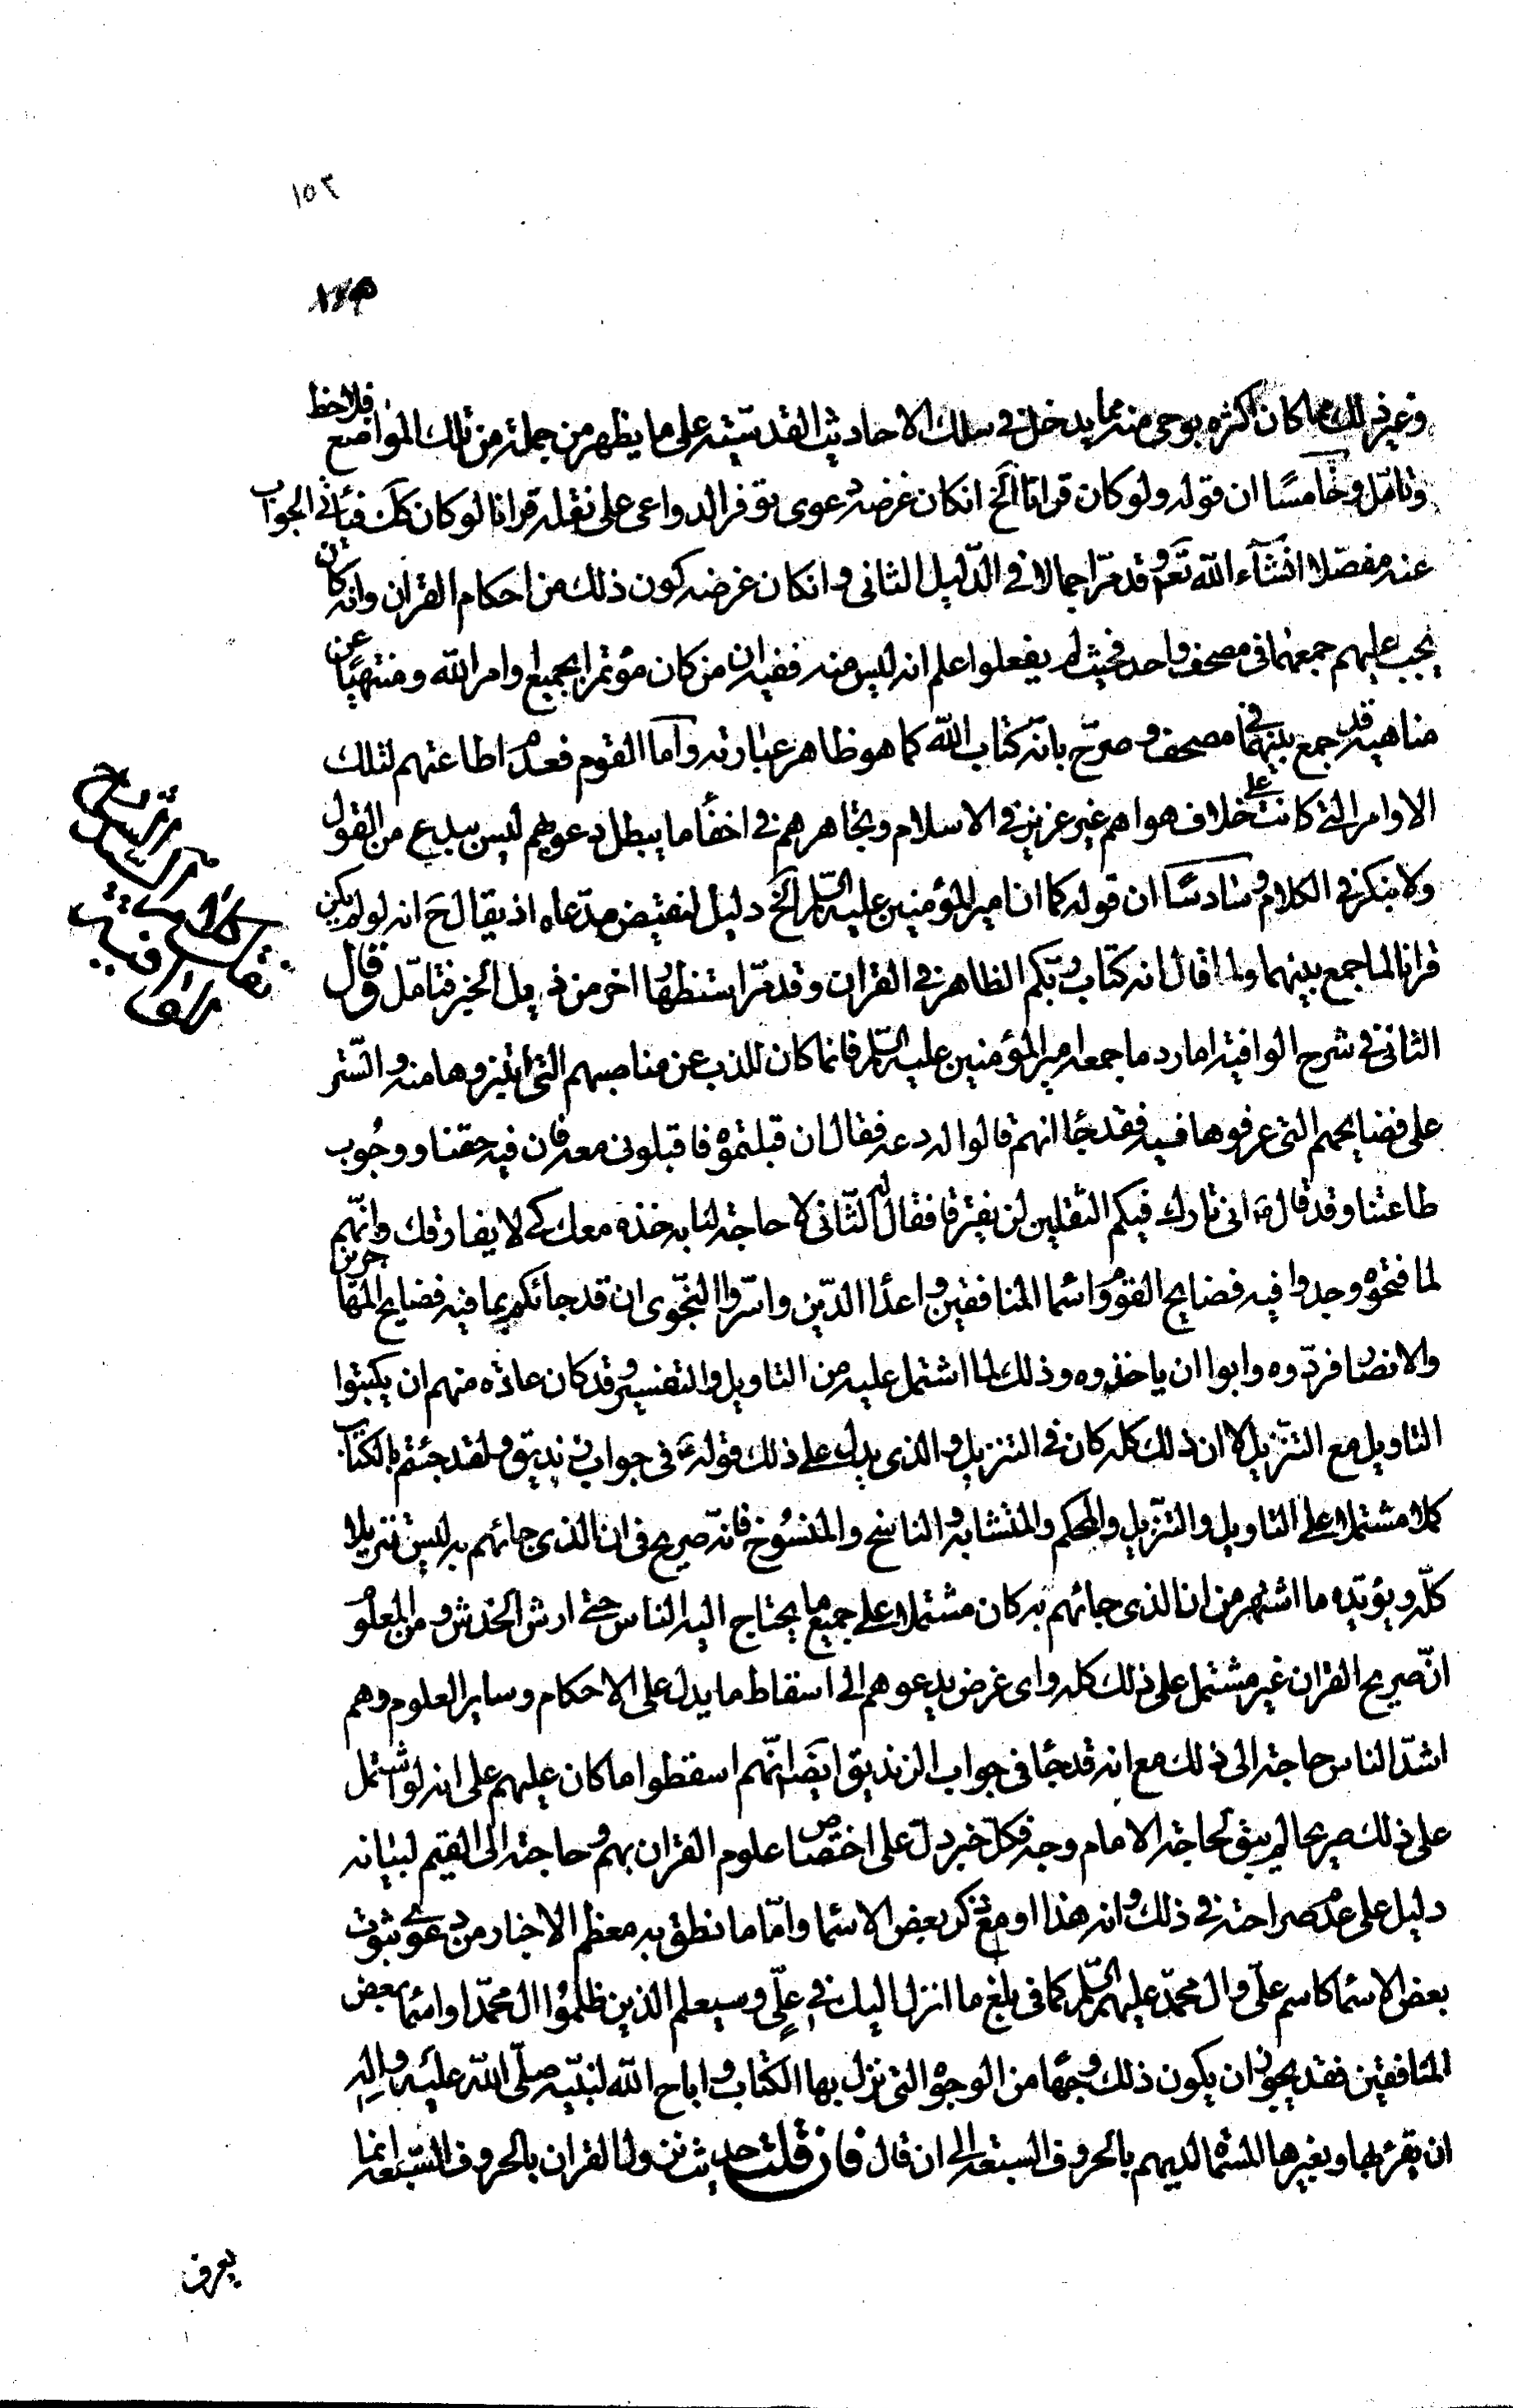 ١٥٢
وغير ذلك مما كان اكثره بوحى منه مما يدخل فى سلك الاحاديث القدسيته على ما يظهر من جملة من تلك المواضع فلاحظ
وتامّل وخامسًا ان قوله ولو كان قرانا الخ انكان غرضه دعوى توفر الدواعى على نقله قرانا لو كان كك فياتى الجواب
عنه مفصّلا انشآء الله تعم وقد مرّ اجمالا فى الدّليل الثانى وانكان غرضه كون ذلك من احكام القران وانه كان
يجب عليهم جمعهما فى مصحف واحد فحيث لم يفعلوا علم انه ليس منه ففيه ان من كان مؤتمرا بجميع اوامر الله ومنتهيًا عن
مناهيه قد جمع بينهما فى مصحف وصرّح بانّه كتاب الله كما هو ظاهر عبارته واما القوم فعدم اطاعتهم لتلك
الاوامر التى كانت على خلاف هواهم غير عزيز فى الاسلام وتجاهرهم فى اخفاء ما يبطل دعويهم ليس ببدع من القول
ولا بنكر فى الكلام وسادسًا ان قوله كما ان امير المؤمنين عليه السّلم الخ دليل لنقيض مدّعاه اذ يقال ح انه لو لم يكن
قرانا لما جمع بينهما ولما قال انه كتاب ربّكم الظاهر فى القران وقد مرّ استظهارا اخر من ذيل الخبر فتامّل وقال
الثانى فى شرح الوافيه اما رد ما جمعه امير المؤمنين عليه السّلم فانما كان للذب عن مناصبهم التى ابتزوها منه والسّتر
على فضايحهم التى عرفوها فيه فقد جا انهم قالوا له دعه فقال ان قبلتموه فاقبلونى معه فان فيه حقنا ووجُوب
طاعتنا وقد قال ص انى تارك فيكم الثقلين لن يفترقا فقال له الثّانى لا حاجة لنا به خذه معك كى لا يفارقك وانّهم
لما فتحوه وجدوا فيه فضايح القوم واسما المنافقين واعدا الدّين واسّروا النجّوى ان قد جائكم بما فيه فضايح المهاجرين
والانصار فردّوه وابوا ان ياخذوه وذلك لما اشتمل عليه من التاويل والتفسير وقد كان عادة منهم ان يكتبوا
التاويل مع التنزيل لا ان ذلك كله كان فى التنزيل والذى يدل على ذلك قوله ع فى جواب زنديق ولقد جئتم بالكتاب
كملا مشتملا على التاويل والتنزيل والمحكم والمتشابه والناسخ والمنسُوخ فانّه صريح فى ان الذى جائهم به ليس تنزيلا
كلّه ويؤيّده ما اشتهر من ان الذى جائهم به كان مشتملا على جميع ما يحتاج اليه الناس حتى ارش الخدش ومن المعلوم
انّ صريح القران غير مشتمل على ذلك كله واى غرض يدعوهم الى اسقاط ما يدل على الاحكام وساير العلوم وهم
اشدّ الناس حاجة الى ذلك مع انه قد جا فى جواب الزنديق ايضا انّهم اسقطوا ما كان عليهم على انه لو اشتمل
على ذلك صريحا لم يبق لحاجة الامام وجه فكلّ خبر دلّ على اختصاص علوم القران بهم وحاجة الى القيم لبيانه
دليل على عدم صراحته فى ذلك وانه هذا او مع ذكر بعض الاسما وامّا ما نطق به معظم الاخبار من دعوى ثبوت
بعض الاسما كاسم علّى وال محمّد عليهم السّلم كما فى بلغ ما انزل اليك فى علّى وسيعلم الذين ظلمُوا ال محمّد او اسما بعض
المنافقين فقد يجوز ان يكون ذلك وجهًا من الوجوه التى نزل بها الكتاب واباح الله لنبيّه صلّى الله عليه واله
ان يقرئها وبغيرها المسّماة لديهم بالحروف السبعه الى ان قال فان قلت حديث نزول القران بالحروف السّبعه انما
يعرف